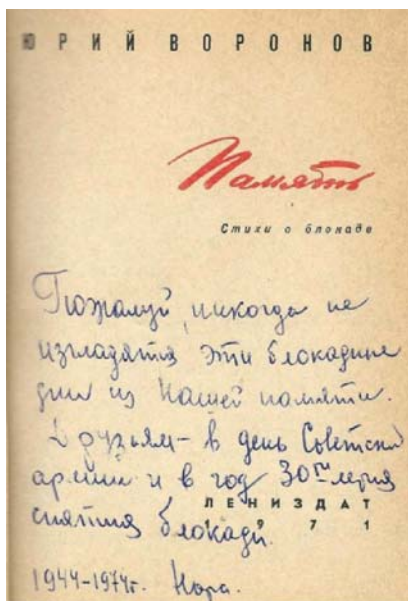 ЮРИЙ ВОРОНОВ
Память
Стихи о блокаде
Пожалуй, никогда не
изгладятся эти блокадные
дни из нашей памяти.
Друзьям – в день Советской
армии и в год 30ти летия
снятия блокады.
ЛЕНИЗДАТ
1971
1944-1974г. Нора.